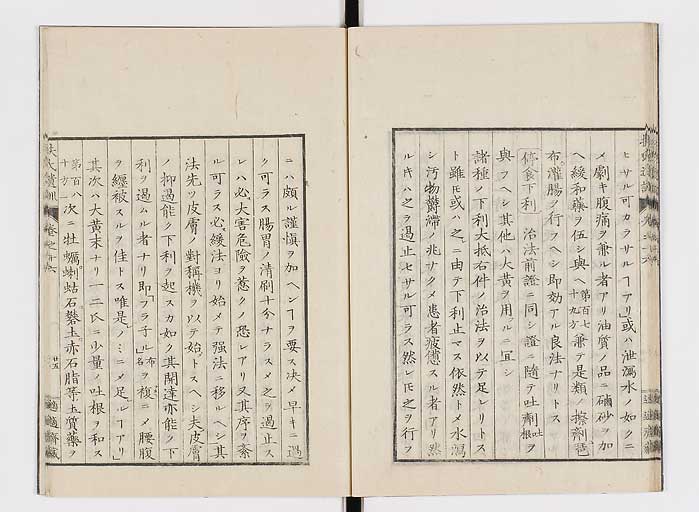 ヒサル可カラサルヿアリ或ハ泄瀉水ノ如クニ
メ劇キ腹痛ヲ兼ル者アリ油質ノ品ニ磠砂ヲ加
ヘ緩和藥ヲ伍シ與ヘ第百七十九方兼テ是類ノ擦劑琶
布灌腸ノ行フヘシ即効アル良法ナリトス
停食下利 治法前證ニ同シ證ニ隨テ吐劑吐根ヲ
與フヘシ其他ハ大黄ヲ用ルニ宜シ
諸種ノ下利大抵右件ノ治法ヲ以テ足レリトス
ト雖𪜈或ハ之ニ由テ下利止マス依然トメ水瀉
シ汚物欝滯ノ兆ナクメ患者疲憊スル者アリ然
ル𪜈ハ之ヲ遏止セサル可ラス然レ𪜈之ヲ行フ
ニハ頗ル謹愼ヲ加ヘンヿヲ要ス决メ早キニ過
ク可ラス腸胃ノ清刷十分ナラスメ之ヲ遏止ス
レハ必大害危險ヲ惹クノ恐レアリ又其序ヲ紊
ル可ラス必緩法ヨリ始メテ强法ニ移ルヘシ其
法先ツ皮膚ノ對稱機ヲ以テ始トスヘシ夫皮膚
ノ抑遏能ク下利ヲ起スカ如ク其開達亦能ク下
利ヲ遏ムル者ナリ即「フラ子ル」布名ヲ複ニメ腰腹
ヲ纏被スルヲ佳トス唯是ノミニメ足ルヿアリ
其次ハ大黄末ナリ一二氏ニ少量ノ吐根ヲ和ス
第百八十方一次ニ牡蠣蝲蛄石礬土赤石脂等土質藥ヲ
扶氏遺訓 卷之十六 廿五 適適齋藏